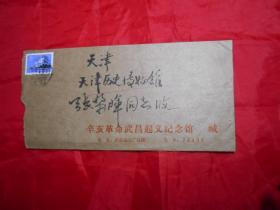 天津
天津历史博物馆
张黎晖同志收
辛亥革命武昌起义纪念馆 缄